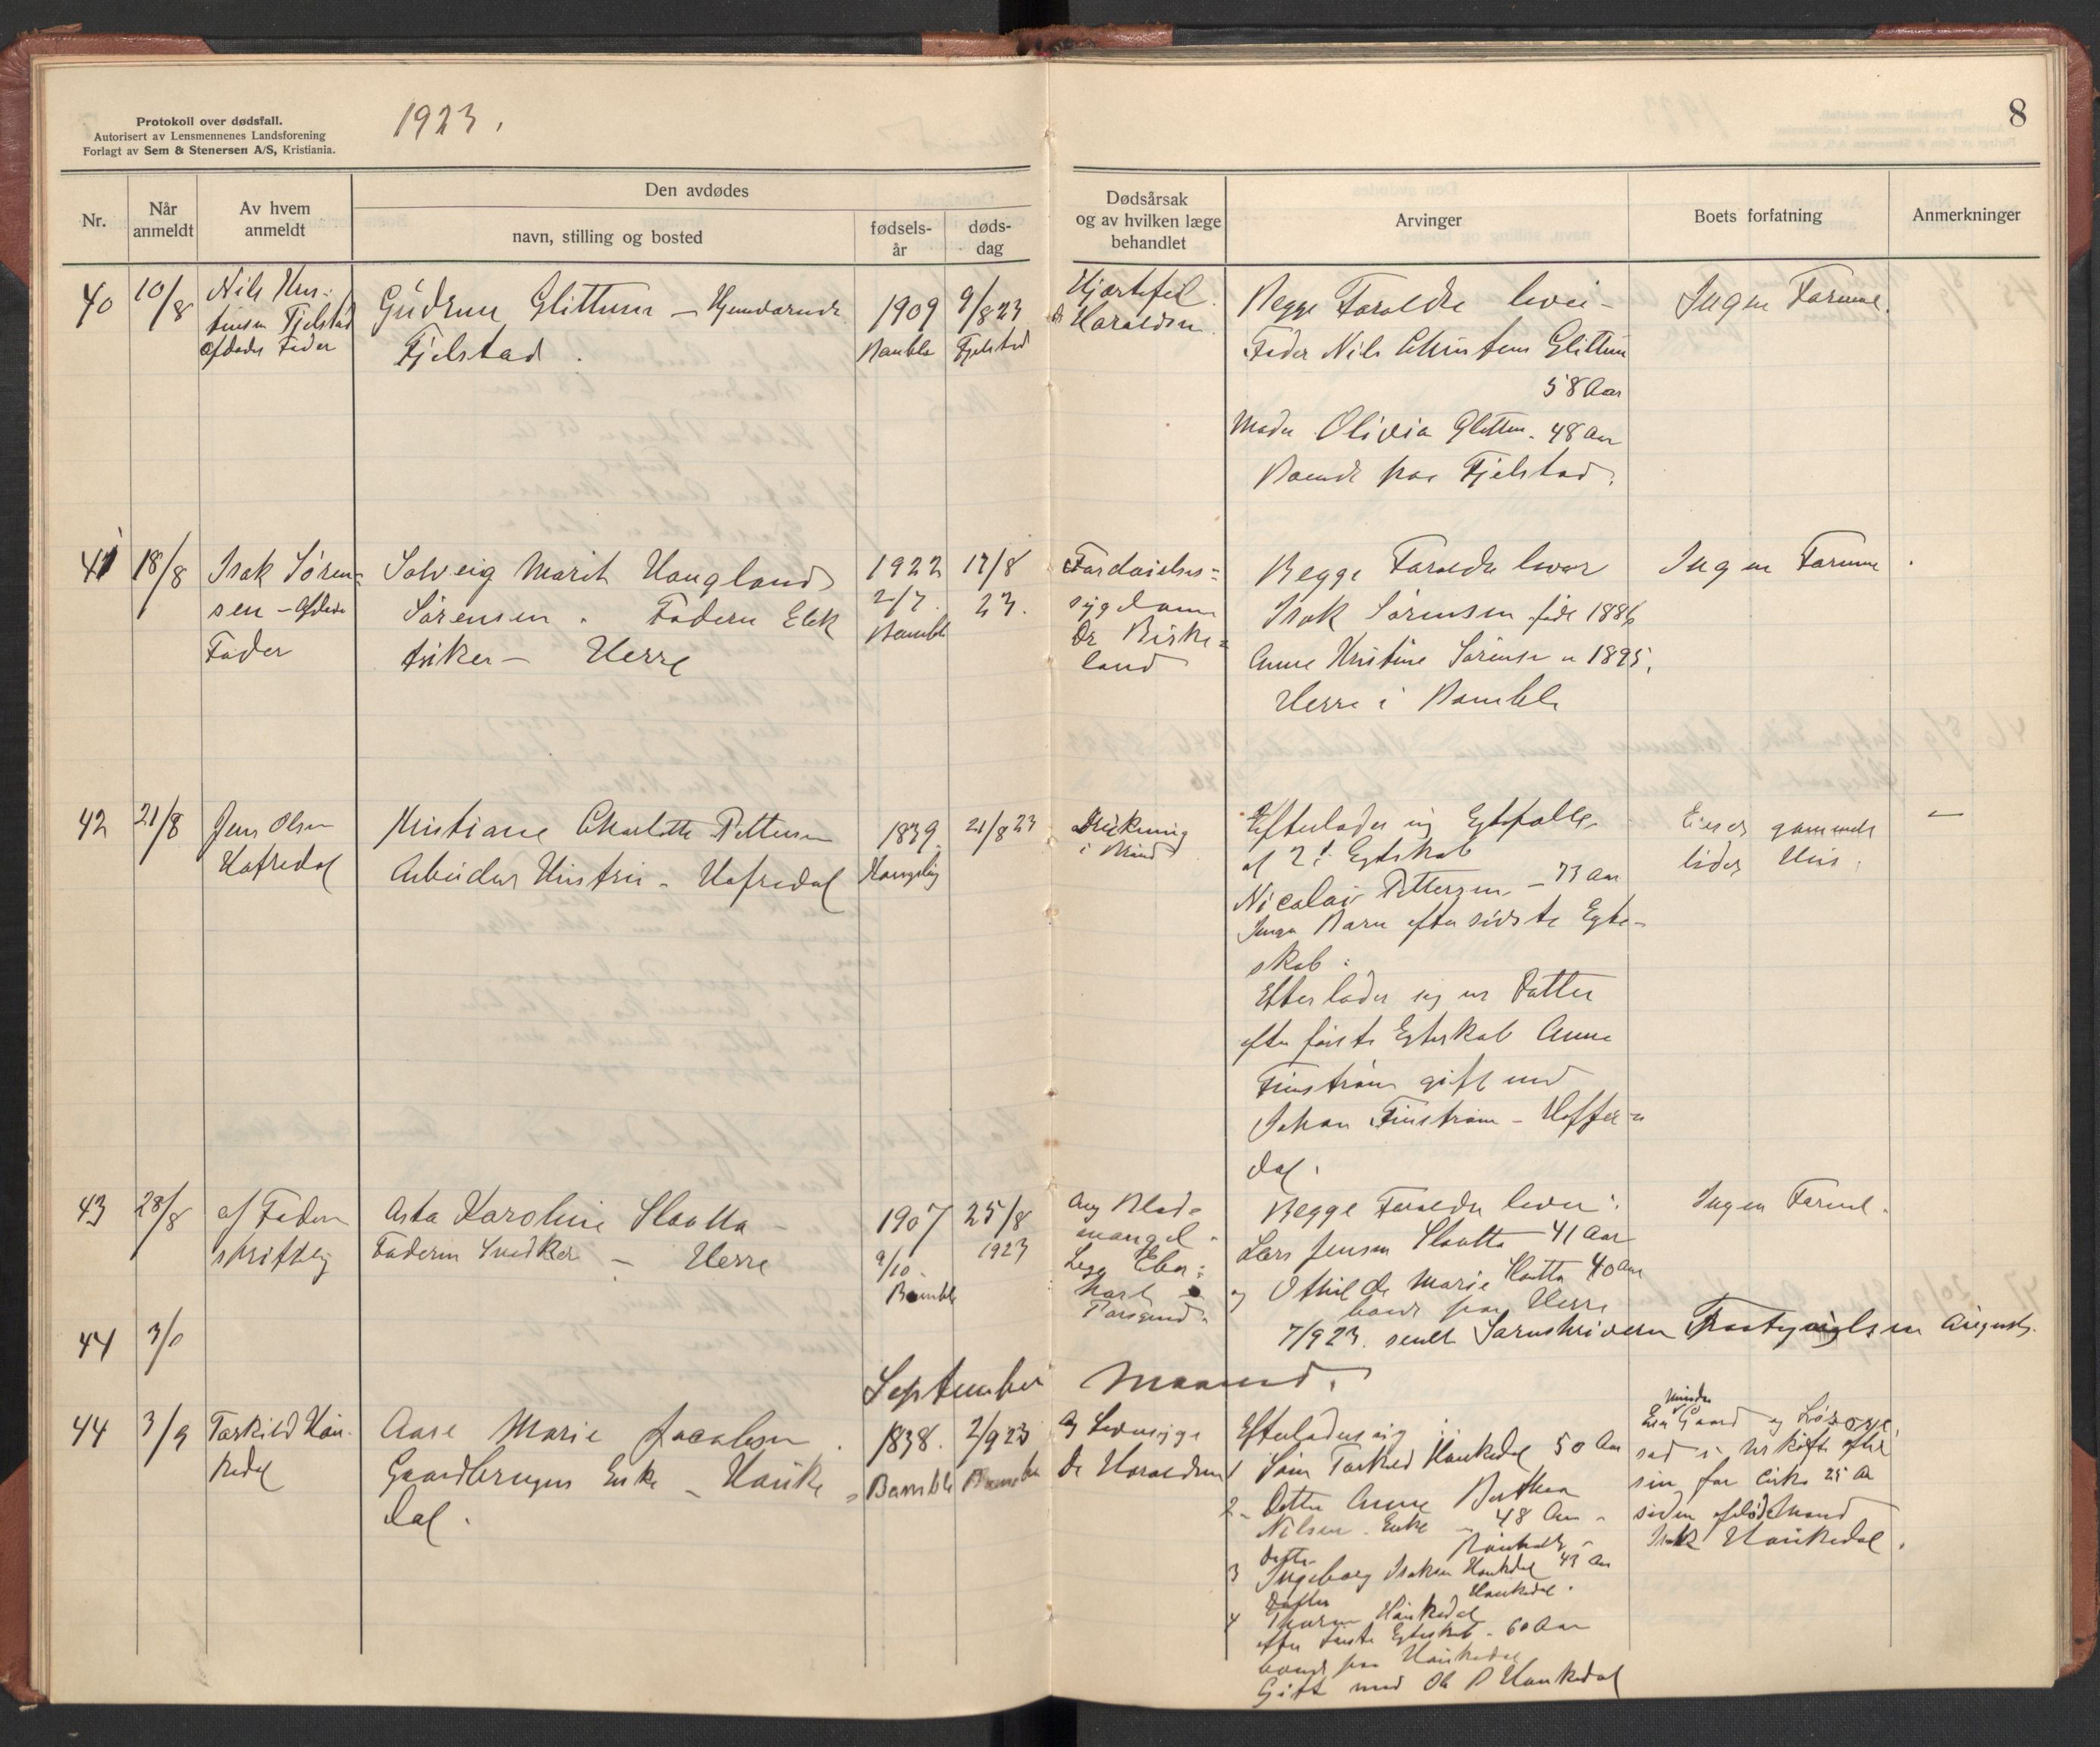 Protokoll over dødsfall.
Autorisert av Lensmennenes Landsforening
Forlagt av Sem & Stenersen A/S, Kristiania.
1923.
8
Nr.
Når anmeldt
Av hvem anmeldt
Den avdødes
navn, stilling og bosted
fødsels-år
døds-dag
Dødsårsak og av hvilken læge behandlet
Arvinger
Boets forfatning
Anmerkninger
40 10/8
Nils Kris-
tensen Fjelstad
afdødes Fader
Gudrun Glittum – Hjemdarende
Fjelstad.
1909
Bamble
9/8 23
Fjelstad
Hjertefeil.
Dr Haraldsen
Begge Foreldre lever –
Fader Nils Christens Glittum
58 Aar
Moder Olivia Glittum. 48 Aar
Boende paa Fjelstad.
Ingen Formue.
41 18/8
Isak Søren-
sen – Afdødes
Fader
Solveig Marit Haugland
Sørensen. Faderen Elek
triker – Herre
1922
2/7.
Bamble
17/8
23.
Fordøielses-
sygdom
Dr Birke-
land
Begge Foreldre lever
Isak Sørensen født 1886
Anne Kristine Sørensen " 1895.
Herre i Bamble
Ingen Formue.
42 21/8
Jens Olsen
Hafredal
Kristiane Charlotte Pettersen
Arbeiders Hustru – Hafredal
1839.
21/8 23
i
Efterlader sig Egtefolle
af 2t Egtskab
Nicolai Pettersen – 73 Aar
Ingen Barn efter sidste Egte-
skab:
Efterlader sig en Datter
efter første Egteskab Anna
Finstrøm gift med
Johan Finstrøm – Haffer-
dal.
Eier et gammelt
lidet Hus.
—
43 28/8
af Faderen
skriftlig
Asta Karoline Slaatta –
Faderen Snedker – Herre
1907
9/10.
Bamble
25/8
1923
Blod-
mangel.
Lege Eber-
hart
Porsgrund.
Begge Foreldre lever.
Lars Jensen Slaatta – 41 Aar
og Othilde Marie Slaatta 40 Aar
boende paa Herre
Ingen Formue.
44 3/0
7/9 23. sendt Sorenskriveren August.
September Maaned.
44 3/9
Torkild Hau-
kedal
Aase Marie Jacobsen.
Gaardbrugers Enke – Hauke-
dal.
1838.
Bamble
2/9 23
Bamble
Dr Haraldsen
Efterlader sig
1 Søn Torkild Haukedal 50 Aar
2 – Datter Anne Berthea
Nilsen. Enke – 48 Aar –
3 Datter
Ingeborg Isaksen Haukedal 43 Aar
Haukedal.
4 Datter
Haukedal
efter første Egteskab – 60 Aar
boende paa Haukedal
Gift med Ole P Haukedal
Mindre
Gaard og Løsøre,
sad i uskiftet efter
sin for cirka 25 Aar
siden afdøde Mand
Isak Haukedal.